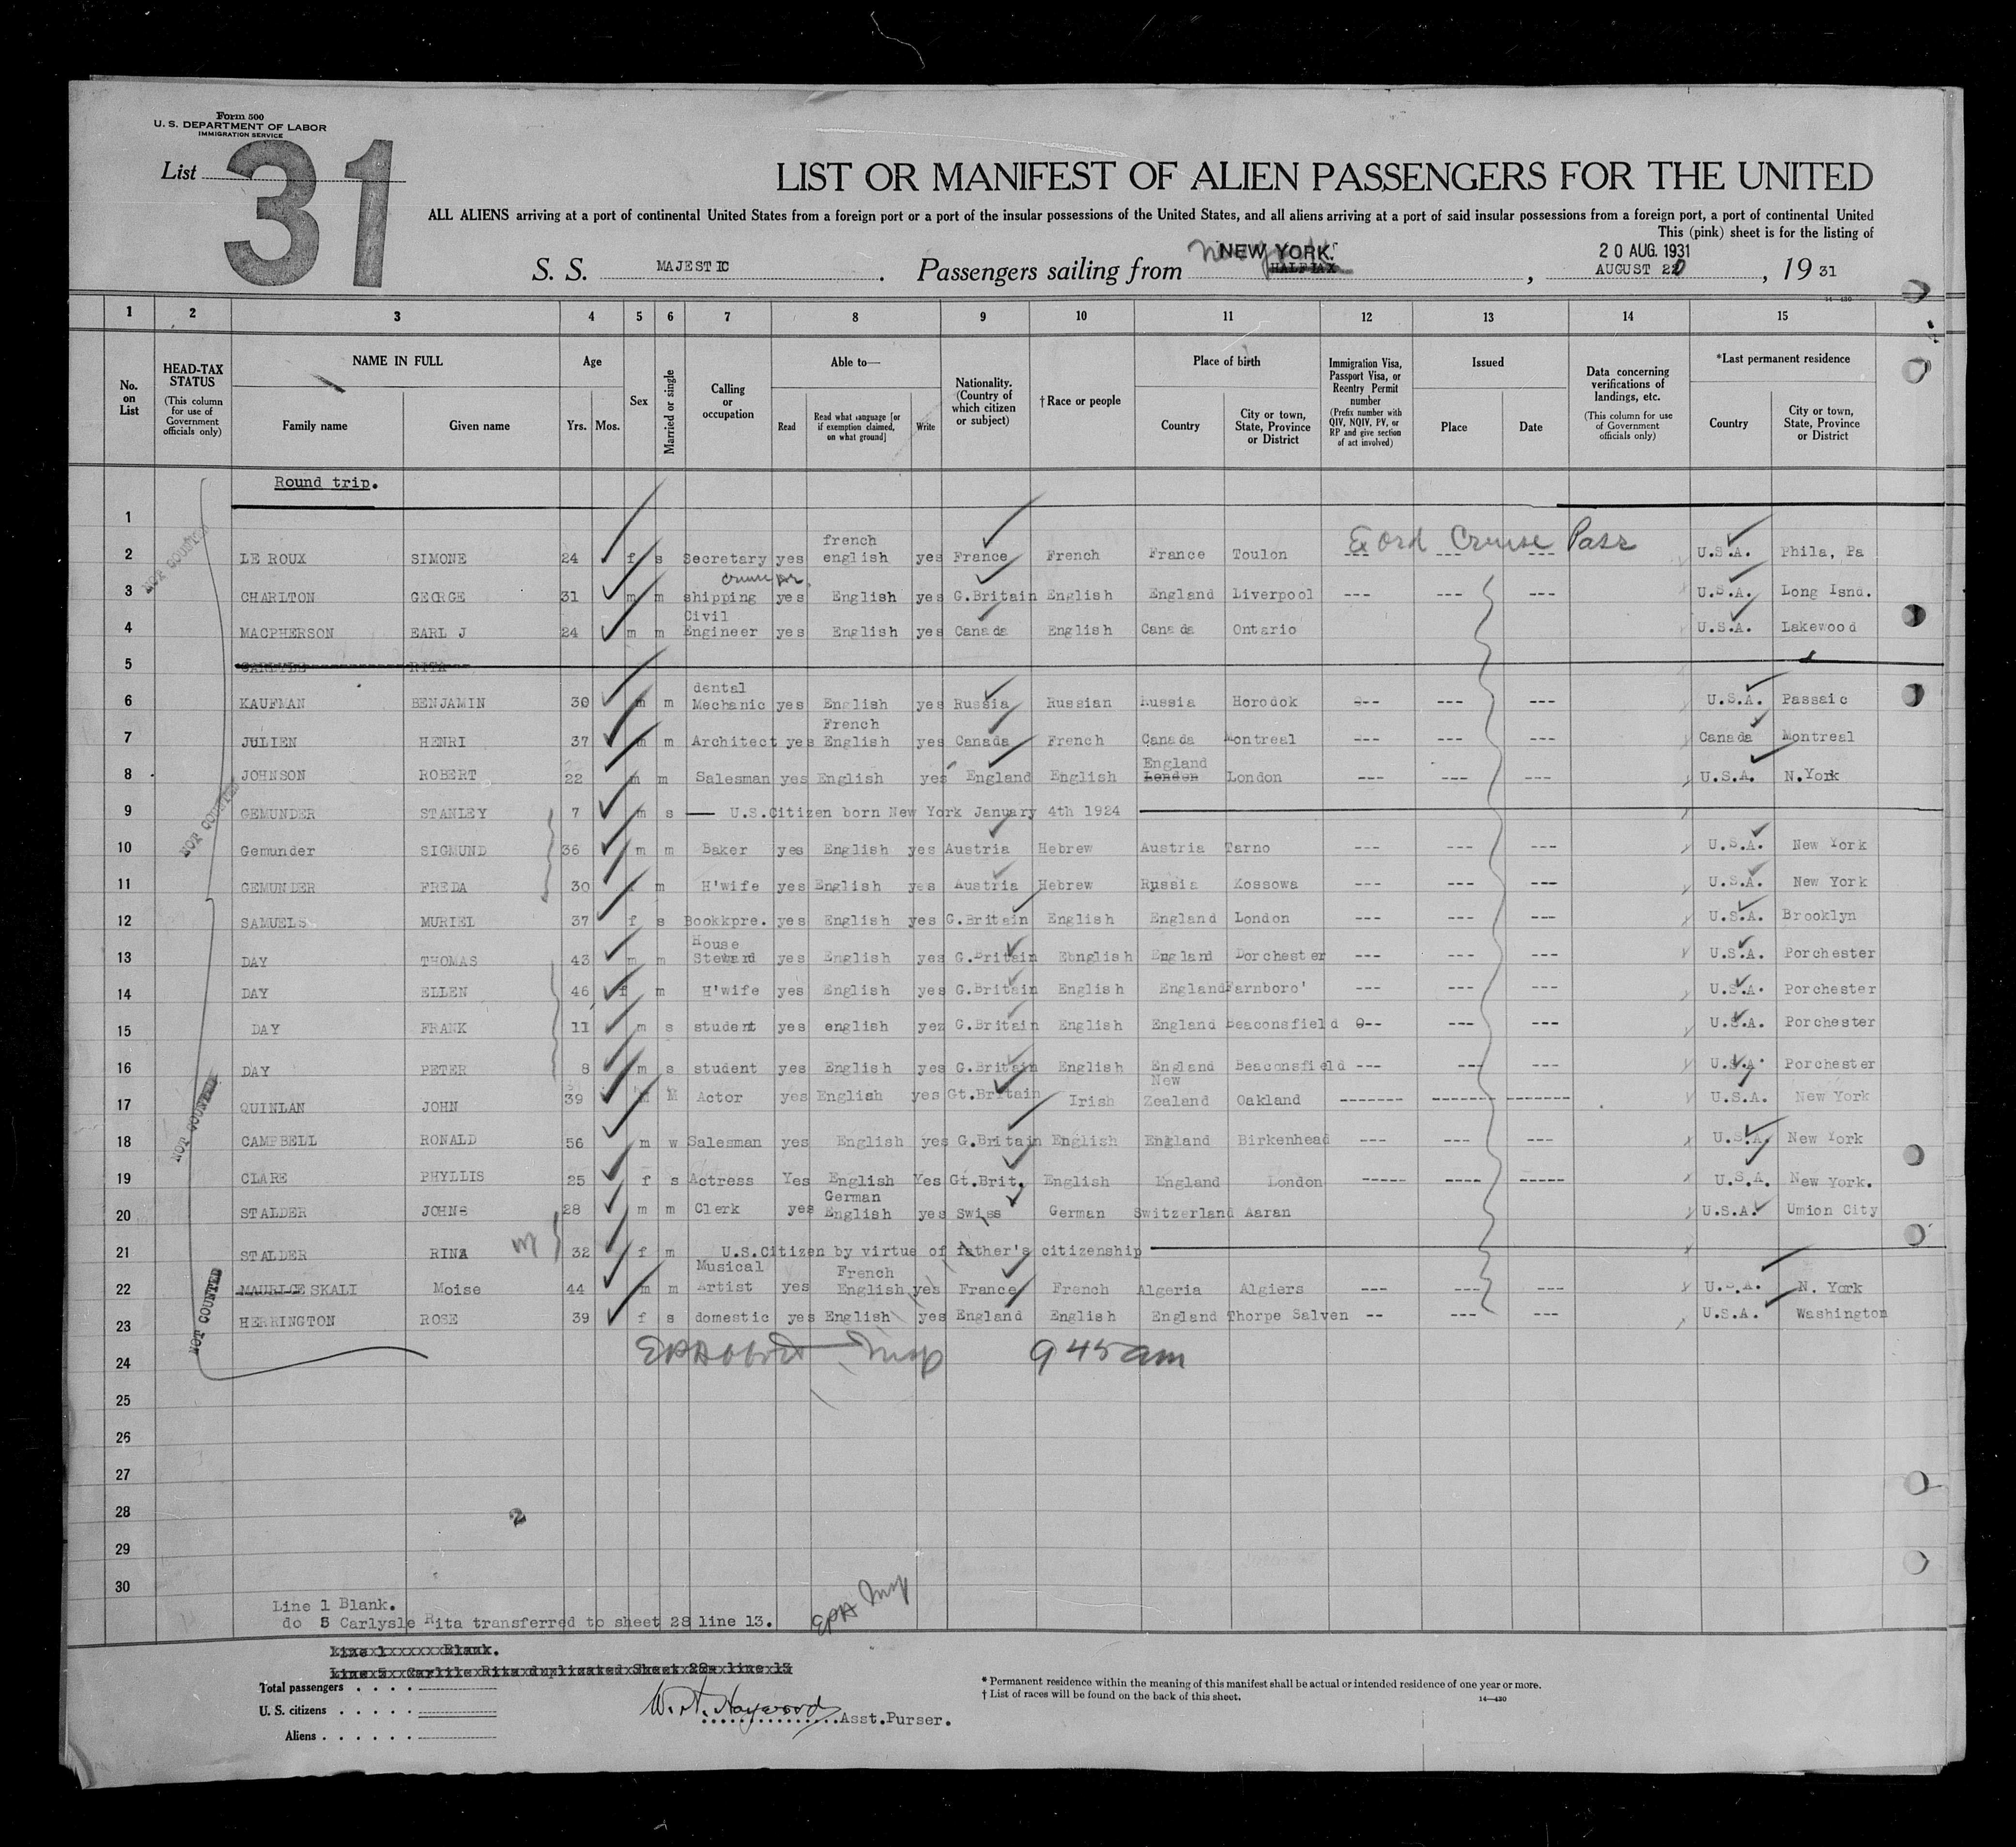 Form 500
U. S. DEPARTMENT OF LABOR
IMMIGRATION SERVICE
List 31
LIST OR MANIFEST OF ALIEN PASSENGERS FOR THE UNITED
ALL ALIENS arriving at a port of continental United States from a foreign port or a port of the insular possessions of the United States, and all aliens arriving at a port of said insular possessions from a foreign port, a port of continental United
This (pink) sheet is for the listing of
S. S. MAJESTIC. Passengers sailing from NEW YORK. HALIFAX, 20 AUG. 1931 AUGUST 20, 1931
14—430
1 2 3 4 5 6 7 8 9 10 11 12 13 14 15
No. on List
HEAD-TAX STATUS (This column for use of Government officials only)
NAME IN FULL Family name Given name
Age Yrs. Mos.
Sex
Married or single
Calling or occupation
Able to— Read Read what language [or if exemption claimed, on what ground] Write
Nationality. (Country of which citizen or subject)
† Race or people
Place of birth Country City or town, State, Province or District
Immigration Visa, Passport Visa, or Reentry Permit number (Prefix number with QIV, NQIV, PV, or RP and give section of act involved)
Issued Place Date
Data concerning verifications of landings, etc. (This column for use of Government officials only)
*Last permanent residence Country City or town, State, Province or District
Round trip.
1
2 LE ROUX SIMONE 24 f s Secretary yes french english yes France French France Toulon Cruise Pass U.S.A. Phila, Pa
3 CHARLTON GEORGE 31 m m shipping yes English yes G.Britain English England Liverpool --- --- --- U.S.A. Long Isnd.
4 MACPHERSON EARL J 24 m m Civil Engineer yes English yes Canada English Canada Ontario U.S.A. Lakewood
5 CARLYLE RITA
6 KAUFMAN BENJAMIN 30 m m dental Mechanic yes English yes Russia Russian Russia Horodok --- --- --- U.S.A. Passaic
7 JULIEN HENRI 37 m m Architect yes French English yes Canada French Canada Montreal --- --- --- Canada Montreal
8 JOHNSON ROBERT 22 m m Salesman yes English yes England English England London London --- --- --- U.S.A. N.York
9 GEMUNDER STANLEY 7 m s U.S.Citizen born New York January 4th 1924
10 Gemunder SIGMUND 36 m m Baker yes English yes Austria Hebrew Austria Tarno --- --- --- U.S.A. New York
11 GEMUNDER FREDA 30 f m H'wife yes English yes Austria Hebrew Russia Kossowa --- --- --- U.S.A. New York
12 SAMUELS MURIEL 37 f s Bookkpre. yes English yes G.Britain English England London --- --- --- U.S.A. Brooklyn
13 DAY THOMAS 43 m m House Steward yes English yes G.Britain Ebnglish England Dorchester --- --- --- U.S.A. Porchester
14 DAY ELLEN 46 f m H'wife yes English yes G.Britain English England Farnboro' --- --- --- U.S.A. Porchester
15 DAY FRANK 11 m s student yes english yez G.Britain English England Beaconsfield --- --- --- U.S.A. Porchester
16 DAY PETER 8 m s student yes English yes G.Britain English England Beaconsfield --- --- --- U.S.A. Porchester
17 QUINLAN JOHN 39 M M Actor yes English yes Gt.Britain Irish New Zealand Oakland ------- ------- ------- U.S.A. New York
18 CAMPBELL RONALD 56 m w Salesman yes English yes G.Britain English England Birkenhead --- --- --- U.S.A. New York
19 CLARE PHYLLIS 25 f s Actress Yes English Yes Gt.Brit. English England London ----- ---- ----- U.S.A. New York.
20 STALDER JOHNS 28 m m Clerk yes German English yes Swiss German Switzerland Aaran U.S.A. Umion City
21 STALDER RINA 32 f m U.S.Citizen by virtue of father's citizenship
22 MAURICE SKALI Moise 44 m m Musical Artist yes French English yes France French Algeria Algiers --- --- --- U.S.A. N. York
23 HERRINGTON ROSE 39 f s domestic yes English yes England English England Thorpe Salven -- --- --- U.S.A. Washington
24 945 am
25
26
27
28
29
30
NOT COUNTED
NOT COUNTED
NOT COUNTED
NOT COUNTED
Line 1 Blank.
do 5 Carlysle Rita transferred to sheet 28 line 13.
Line 1 Blank.
Line 5 Carlile Rita duplicated Sheet 28 line 13
Total passengers . . . .
U. S. citizens . . . . .
Aliens . . . . . .
W. A. Haywood Asst.Purser.
* Permanent residence within the meaning of this manifest shall be actual or intended residence of one year or more.
† List of races will be found on the back of this sheet.
14—430